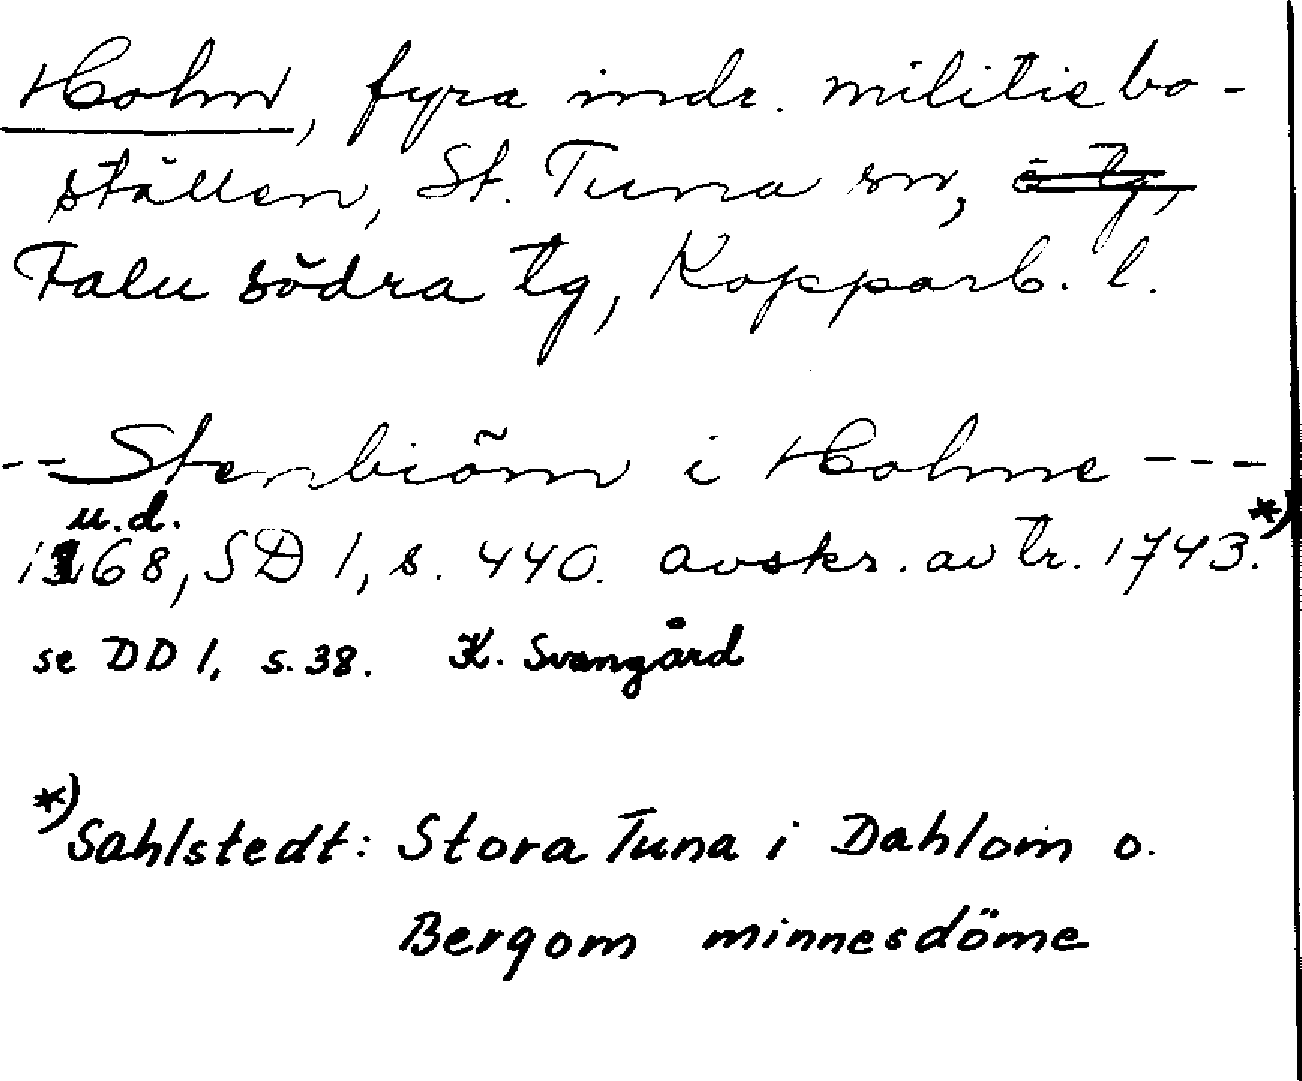 Holm, fyra indr. militiebo-
ställen, St. Tuna sn,
Falu södra tg, Kopparb. l.
-- Stenbiõrn i Holme ---
u.d.
1168, SD 1, s. 440. avskr. av tr. 1743.*)
se DD 1, s. 38. K. Svangård
*) Sahlstedt: Stora Tuna i Dahlom o.
Bergom minnesdöme